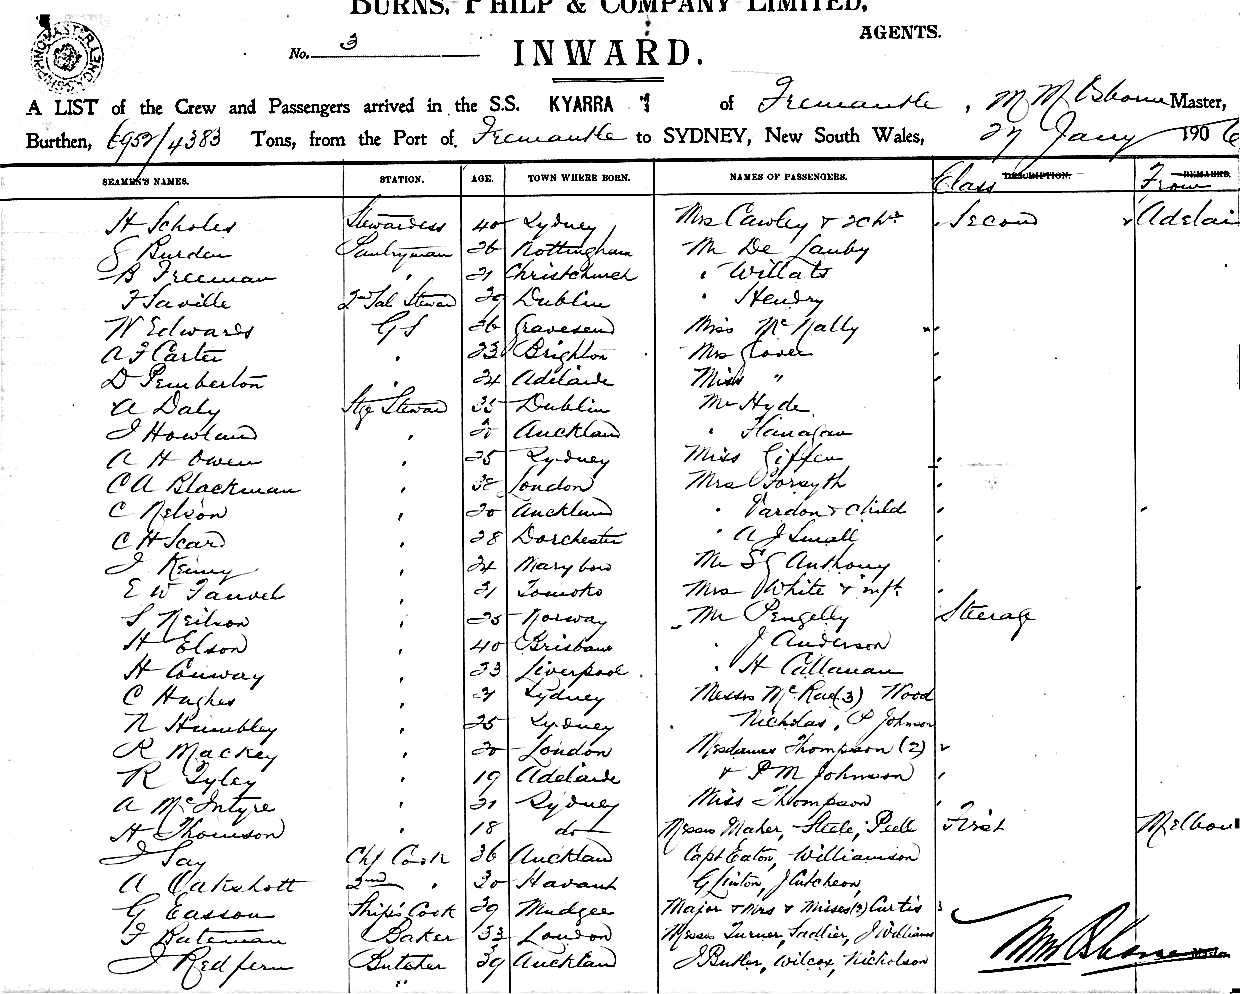 BURNS, PHILP & COMPANY LIMITED,
AGENTS.
No. 3
INWARD.
A LIST of the Crew and Passengers arrived in the S.S. KYARRA of Fremantle, M M Osborne Master,
Burthen, 6952/4383 Tons, from the Port of Fremantle to SYDNEY, New South Wales, 27 Jany 1906
SEAMEN'S NAMES. STATION. AGE. TOWN WHERE BORN. NAMES OF PASSENGERS. Class DESCRIPTION. From REMARKS.
H Scholes Stewardess 40 Sydney Mrs Cawley & 2 Chn Second Adelai
G Burden Pantryman 26 Nottingham Mr De Lauby
B Freeman " 21 Christchurch " Willats
F Saville 2nd Sal Steward 29 Dublin " Hendry
W Edwards G S 26 Gravesend Miss McNally
A F Carter " 23 Brighton Mrs Glover
D Pemberton " 24 Adelaide Miss "
A Daly Stge Steward 35 Dublin Mr Hyde
J Howland " Aucklan " Flanagan
A H Owen " 25 Sydney Miss Giffen
C A Blackman " 38 London Mrs Forsyth
C Nelson " 20 Auckland " Vardon & Child
C H Scard " 28 Dorchester " A J Small
J Kenny " 24 Marybow Mr S G Anthony
E W " 21 Mrs White & inft
S Neilson " 25 Norway Mr Pengelly Steerage
H Elson " 40 Brisbane " J Anderson
H Conway " 23 Liverpool " H Callanan
C Hughes " 21 Sydney Messrs McRae (3) Wood
N Humbley " 25 Sydney Nicholas, P Johnson
R Mackey " 20 London Mesdames Thompson (2)
R Tyley " 19 Adelaide & P M Johnson
A McIntyre " 21 Sydney Miss Thompson
H Thomson " 18 do Messrs Maher, Steele, Peele First Melbou
J Say Chf Cook 36 Aucklan Capt Eaton, Williamson
A Oakshott 2nd " 30 Havant G Linton, J Hutcheon,
G Easson Ship's Cook 29 Mudgee Major & Mrs & Misses (2) Curtis
F Bateman Baker 33 London Messrs Turner, Sadlier, J Williams
J Redfern Butcher 39 Aucklan J Butler, Wilcox, Nicholson
M M Osborne